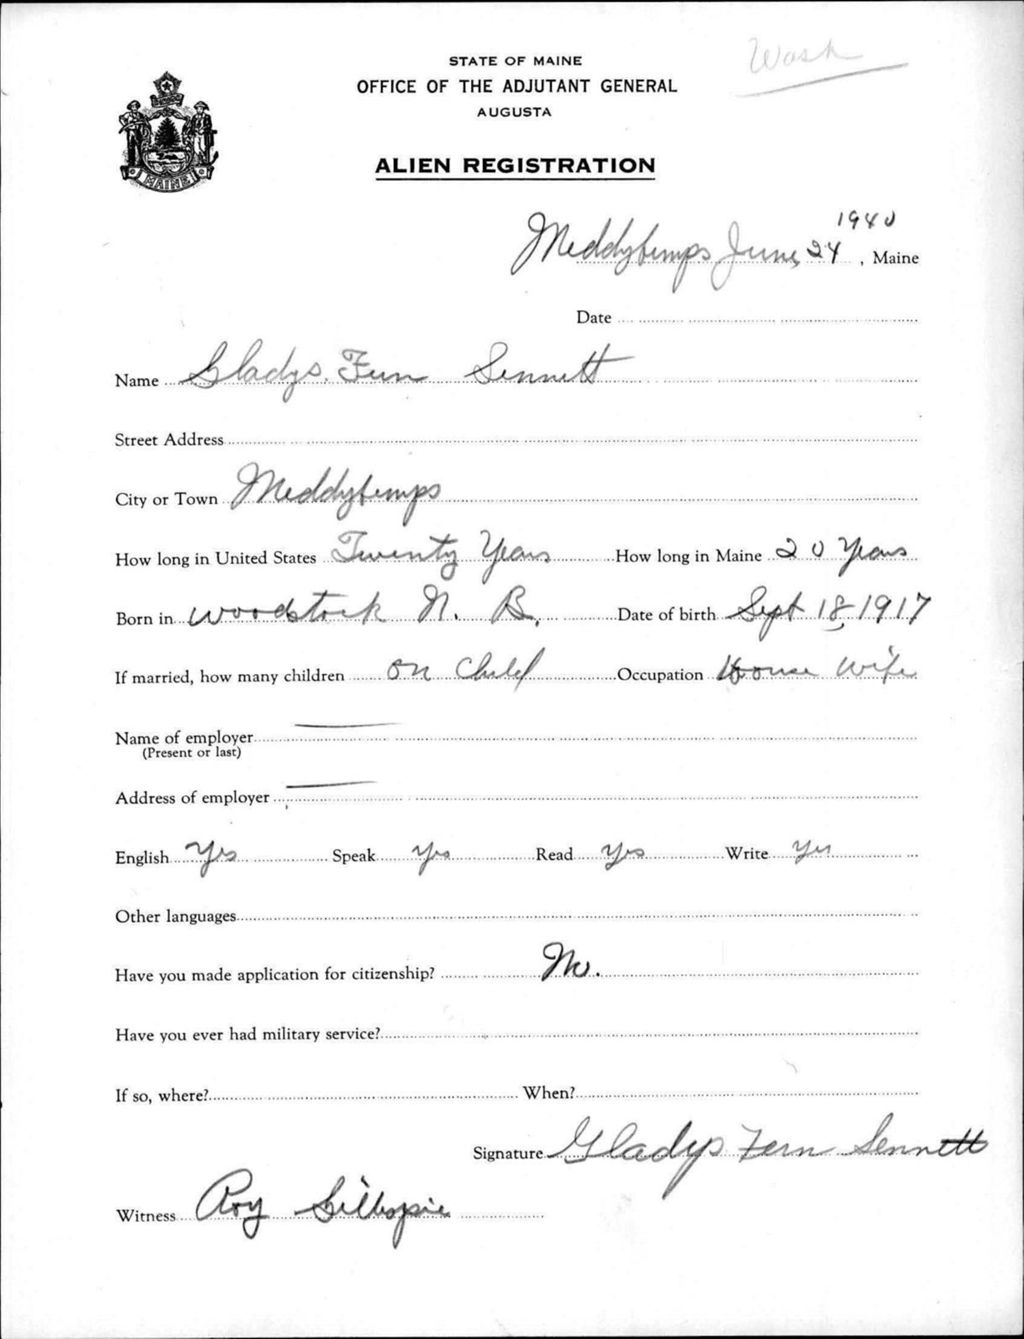 Wash
STATE OF MAINE
OFFICE OF THE ADJUTANT GENERAL
AUGUSTA
MAINE
ALIEN REGISTRATION
1940
Meddybemps June 24, Maine
Date
Name Gladys. Fern Sennett
Street Address
City or Town Meddybemps
How long in United States Twenty Years How long in Maine 20 Years
Born in Woodstock N. B. Date of birth Sept 18-1917
If married, how many children on Child Occupation House Wife
Name of employer
(Present or last)
Address of employer
English Yes Speak Yes Read Yes Write Yes
Other languages
Have you made application for citizenship? No.
Have you ever had military service?
If so, where? When?
Signature Gladys Fern Sennett
Witness Roy Gillespie